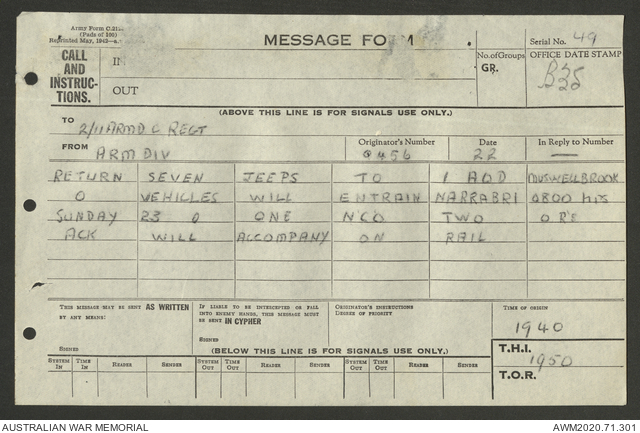 Army Form C.21
(Pads of 100)
Reprinted May, 1943
MESSAGE FORM
Serial No. 49
CALL AND INSTRUC-TIONS.
IN
OUT
No. of Groups
GR.
OFFICE DATE STAMP
(ABOVE THIS LINE IS FOR SIGNALS USE ONLY.)
TO 2/11 ARMD C REGT
FROM ARM DIV
Originator's Number
Q456
Date
22
In Reply to Number
—
RETURN SEVEN JEEPS TO 1 AOD MUSWELLBROOK
O VEHICLES WILL ENTRAIN NARRABRI 0800 hrs
SUNDAY 23 O ONE NCO TWO OR's
ACK WILL ACCOMPANY ON RAIL
THIS MESSAGE MAY BE SENT AS WRITTEN
BY ANY MEANS:
SIGNED
IF LIABLE TO BE INTERCEPTED OR FALL
INTO ENEMY HANDS, THIS MESSAGE MUST
BE SENT IN CYPHER
SIGNED
ORIGINATOR'S INSTRUCTIONS
DEGREE OF PRIORITY
TIME OF ORIGIN
1940
(BELOW THIS LINE IS FOR SIGNALS USE ONLY.)
T.H.I.
1950
T.O.R.
SYSTEM IN TIME IN READER SENDER SYSTEM OUT TIME OUT READER SENDER SYSTEM OUT TIME OUT READER SENDER
AUSTRALIAN WAR MEMORIAL
AWM2020.71.301